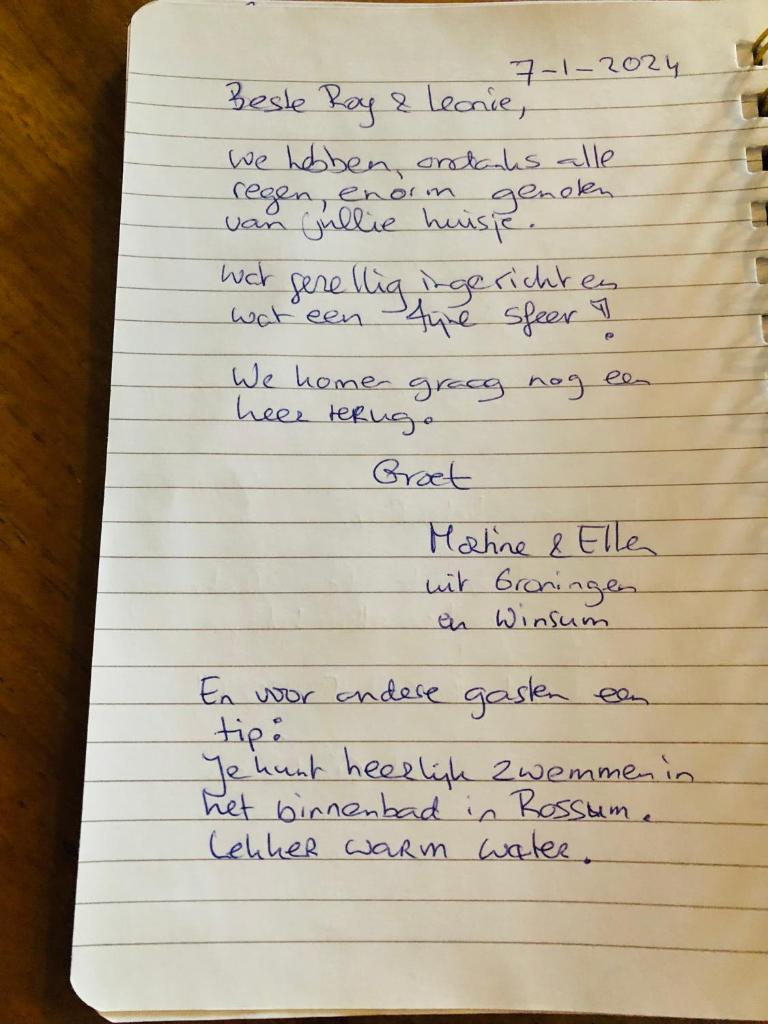 7-1-2024
Beste Roy & Leonie,
we hebben, ondanks alle
regen, enorm genoten
van jullie huisje.
wat gezellig ingericht en
wat een fijne sfeer!
We komen graag nog een
keer terug.
Groet
Martine & Ellen
uit Groningen
en Winsum
En voor andere gasten een
tip:
Je kunt heerlijk zwemmen in
het binnenbad in Rossum.
Lekker warm water.